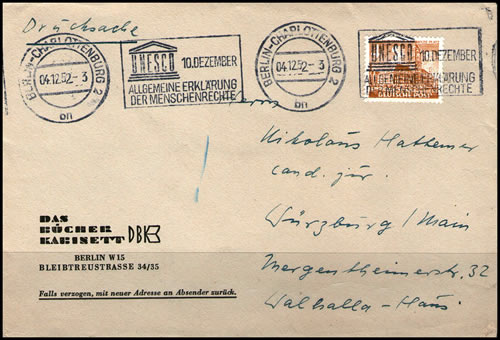 Drucksache
BERLIN-CHARLOTTENBURG 2
04.12.52 – 3
bn
UNESCO
10. DEZEMBER
ALLGEMEINE ERKLÄRUNG
DER MENSCHENRECHTE
BERLIN-CHARLOTTENBURG 2
04.12.52 – 3
bn
UNESCO
10. DEZEMBER
ALLGEMEINE ERKLÄRUNG
DER MENSCHENRECHTE
Herrn
Nikolaus Hattemer
cand. jur.
Würzburg / Main
Mergentheimerstr. 32
Walhalla-Haus
DAS
BÜCHER
KABINETT DBK
BERLIN W 15
BLEIBTREUSTRASSE 34/35
Falls verzogen, mit neuer Adresse an Absender zurück.